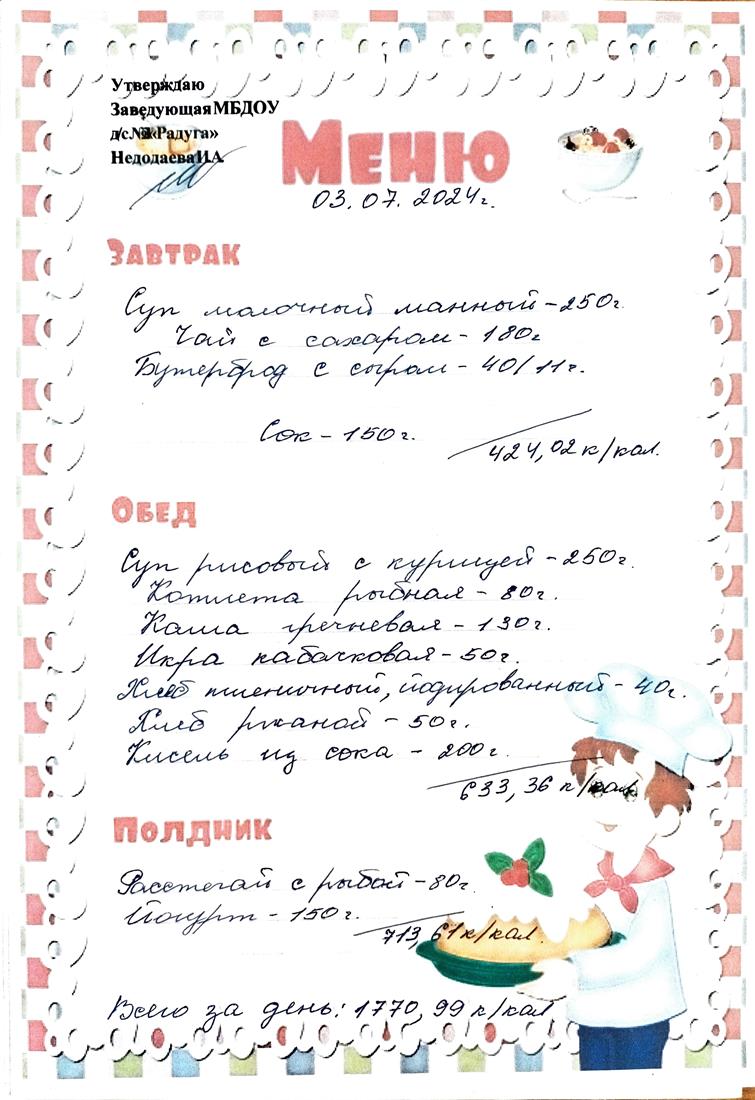 Утверждаю
Заведующая МБДОУ
д/с «Радуга»
Недодаева И.А.
Меню
03.07.2024г.
Завтрак
Суп молочный манный - 250г.
Чай с сахаром - 180г
Бутерброд с сыром - 40/11г.
Сок - 150г.
424,02 к/кал.
Обед
Суп рисовый с курицей - 250г.
Котлета рыбная - 80г.
Каша гречневая - 130г.
Икра кабачковая - 50г.
Хлеб пшеничный, йодированный - 40г.
Хлеб ржаной - 50г.
Кисель из сока - 200г.
633,36 к/кал.
Полдник
Расстегай с рыбой - 80г.
Йогурт - 150г.
713,61 к/кал.
Всего за день: 1770,99 к/кал